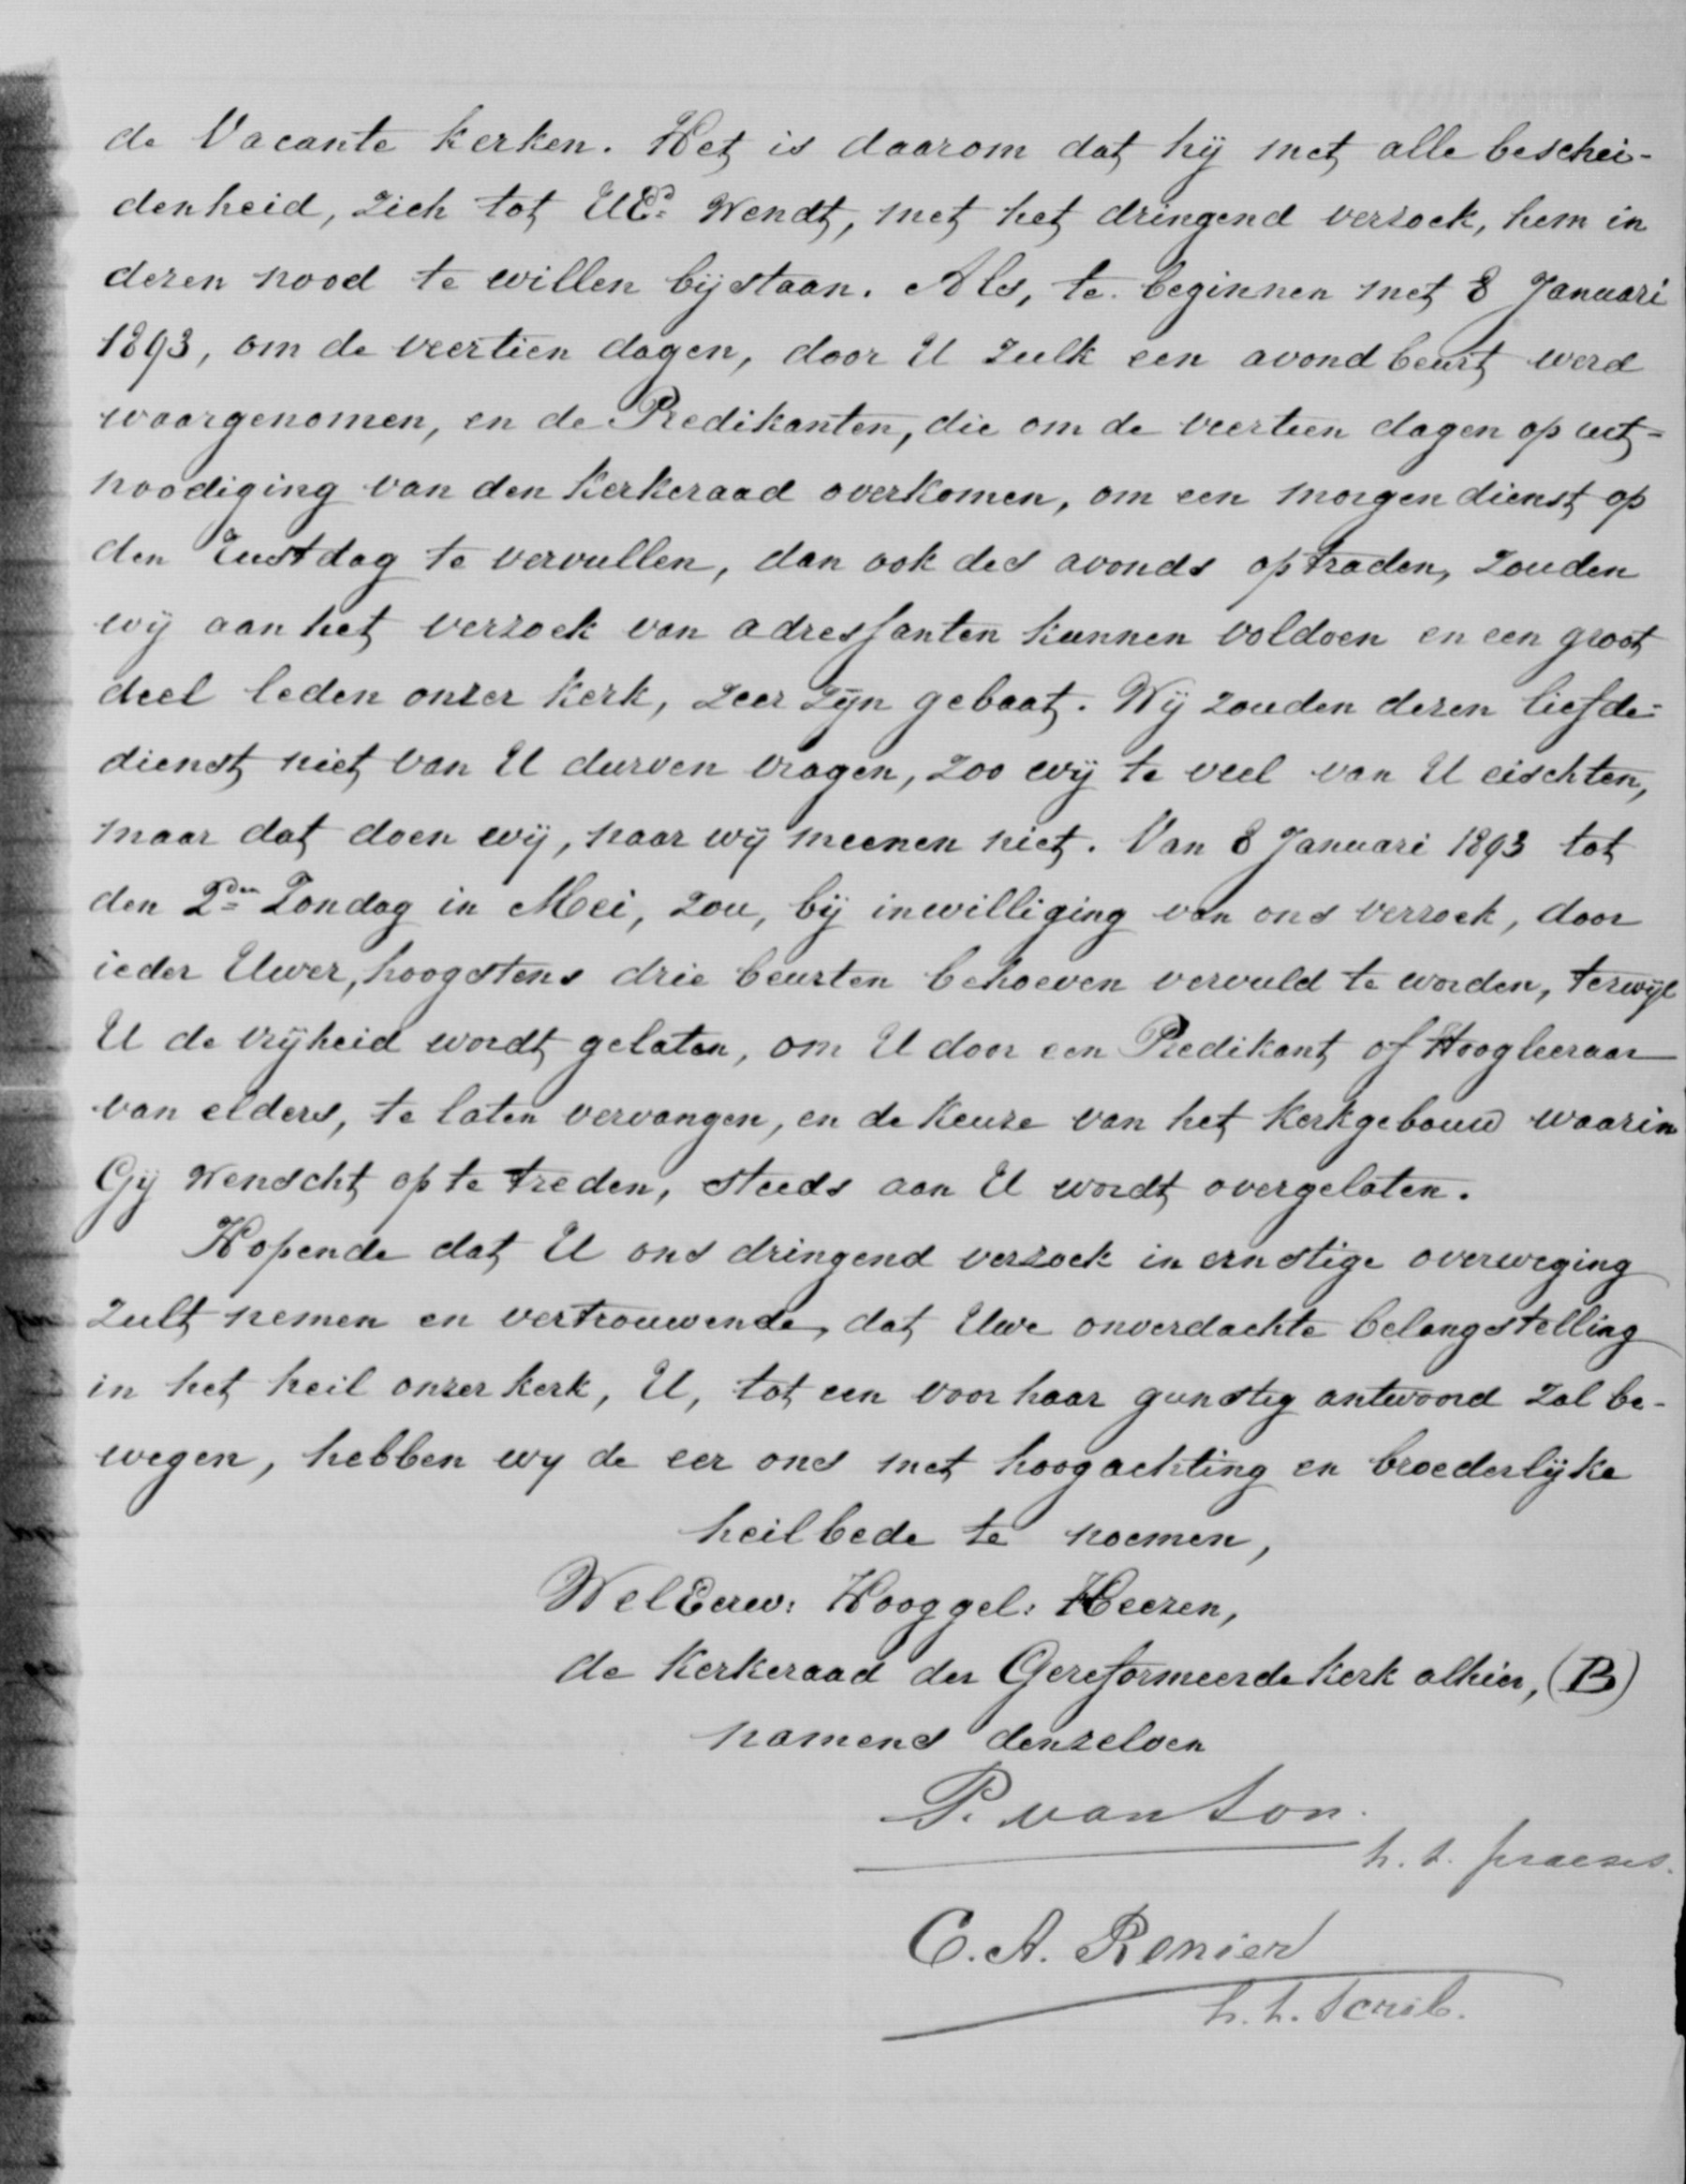 de Vacante kerken. Het is daarom dat hij met alle beschei-
denheid, zich tot UEd= wendt, met het dringend verzoek, hem in
dezen nood te willen bijstaan. Als, te beginnen met 8 Januari
1893, om de veertien dagen, door U zulk een avondbeurt werd
waargenomen, en de Predikanten, die om de veertien dagen op uit-
noodiging van den Kerkeraad overkomen, om een morgendienst op
den rustdag te vervullen, dan ook des avonds optraden, zouden
wij aan het verzoek van adressanten kunnen voldoen en een groot
deel leden onzer Kerk, zeer zijn gebaat. Wij zouden dezen liefde=
dienst niet van U durven vragen, zoo wij te veel van U eischten,
maar dat doen wij, naar wij meenen niet. Van 8 Januari 1893 tot
den 2den Zondag in Mei, zou, bij inwilliging van ons verzoek, door
ieder Uwer, hoogstens drie beurten behoeven vervuld te worden, terwijl
U de vrijheid wordt gelaten, om U door een Predikant of Hoogleeraar
van elders, te laten vervangen, en de Keuze van het Kerkgebouw waarin
Gij wenscht op te treden, steeds aan U wordt overgelaten.
Hopende dat U ons dringend verzoek in ernstige overweging
zult nemen en vertrouwende, dat Uwe onverdachte belangstelling
in het heil onzer kerk, U, tot een voor haar gunstig antwoord zal be-
wegen, hebben wy de eer ons met hoogachting en broederlijke
heilbede te noemen,
WelEerw: Hooggel: Heeren,
de Kerkeraad der Gereformeerde Kerk alhier, (B)
namens denzelven
P. van Son.
h. t. praeses.
C. A. Renier
h. t. Scrib.